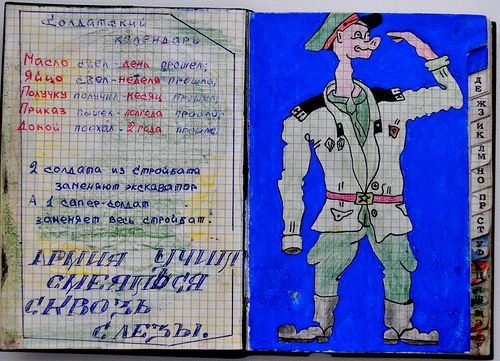 Солдатский
календарь
Масло съел - день прошел;
Яйцо съел - неделя прошла,
Получку получил - месяц прошел,
Приказ вышел - полгода прошло,
Домой поехал - 2 года прошло.
2 солдата из стройбата
заменяют экскаватор
А 1 сапер-солдат
заменяет весь стройбат.
АРМИЯ УЧИТ
СМЕЯТЬСЯ
СКВОЗЬ
СЛЕЗЫ.
ДЕ
ЖЗ
ИК
ЛМ
НО
ПР
СТ
УФ